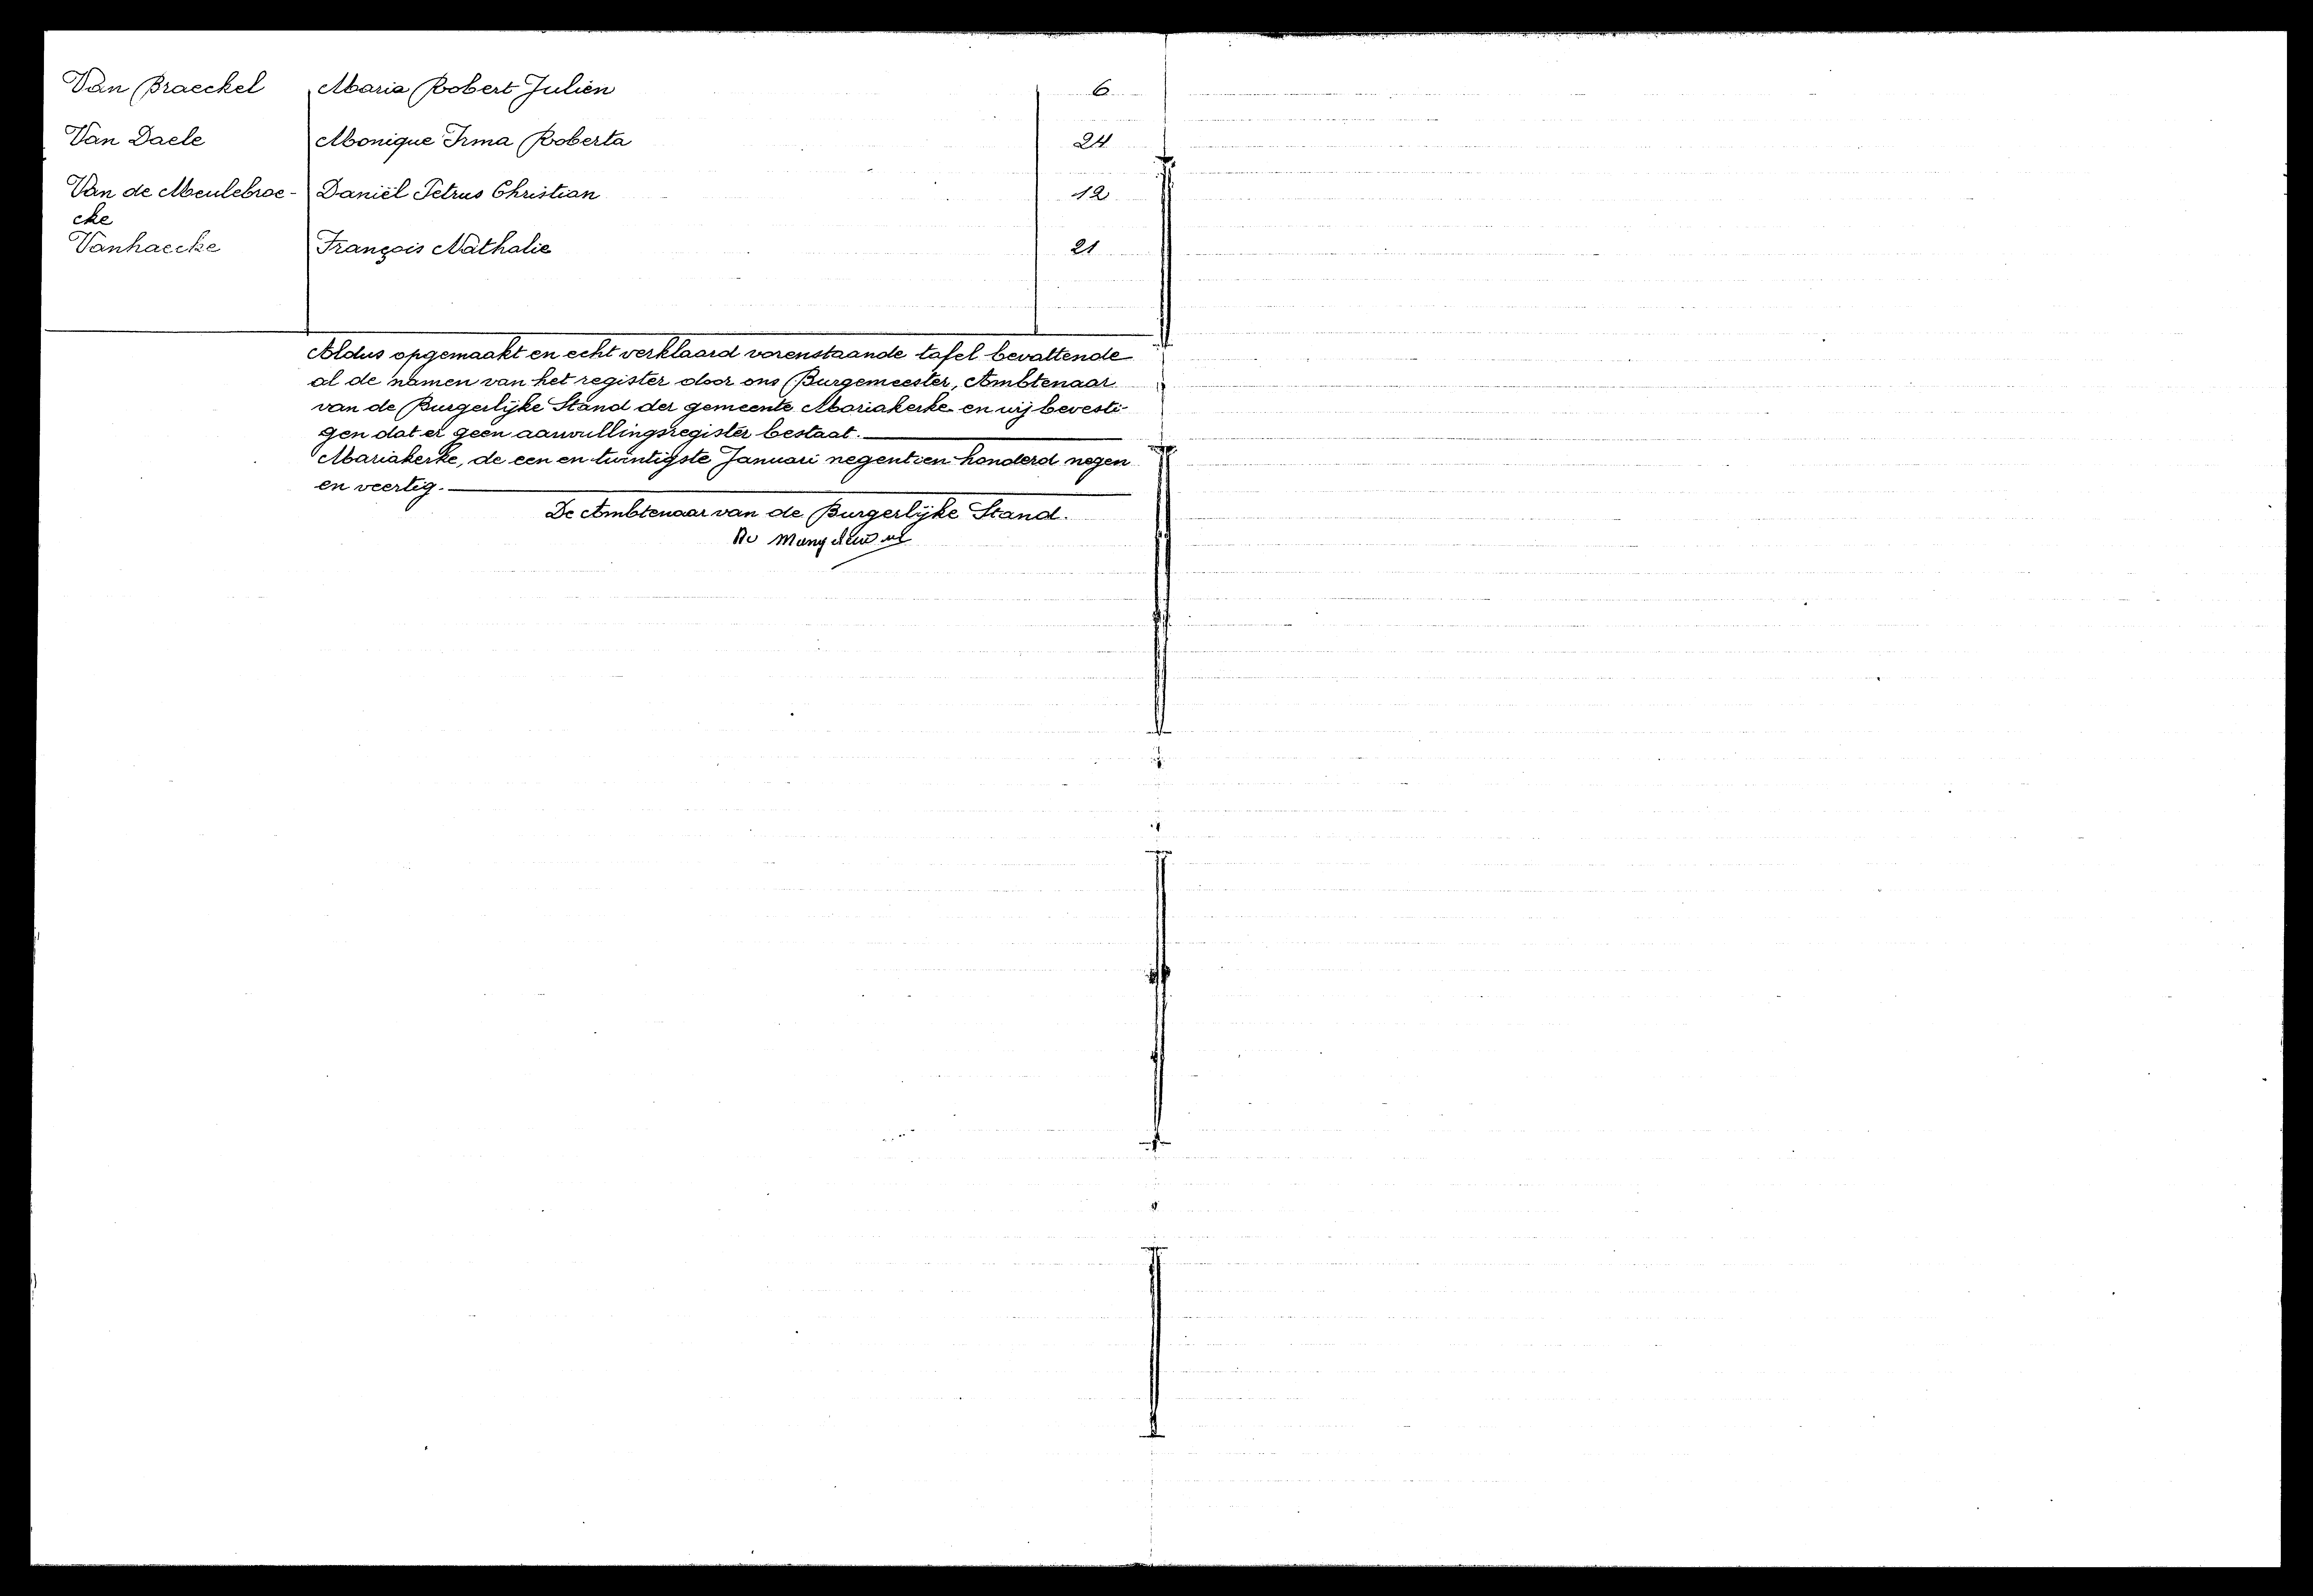 Van Braeckel Maria Robert Julien 6
Van Daele Monique Irma Roberta 24
Van de Meulebroe- Daniël Petrus Christian 12
cke
Vanhaecke François Nathalie 21
Aldus opgemaakt en echt verklaard vorenstaande tafel bevattende
al de namen van het register door ons Burgemeester, Ambtenaar
van de Burgerlijke Stand der gemeente Mariakerke en wij bevesti-
gen dat er geen aanvullingsregister bestaat.
Mariakerke, de een en twintigste Januari negentien honderd negen
en veertig.
De Ambtenaar van de Burgerlijke Stand.